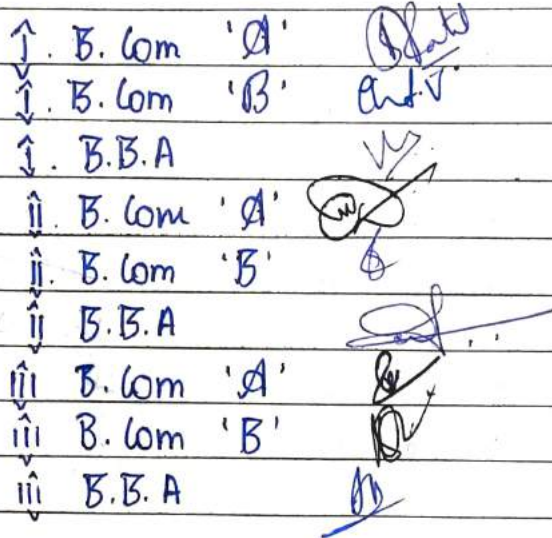 I. B. Com 'A'
I. B. Com 'B'
I. B.B.A
II B. Com 'A'
II. B. Com 'B'
II B.B.A
III B. Com 'A'
III B. Com 'B'
III B.B.A